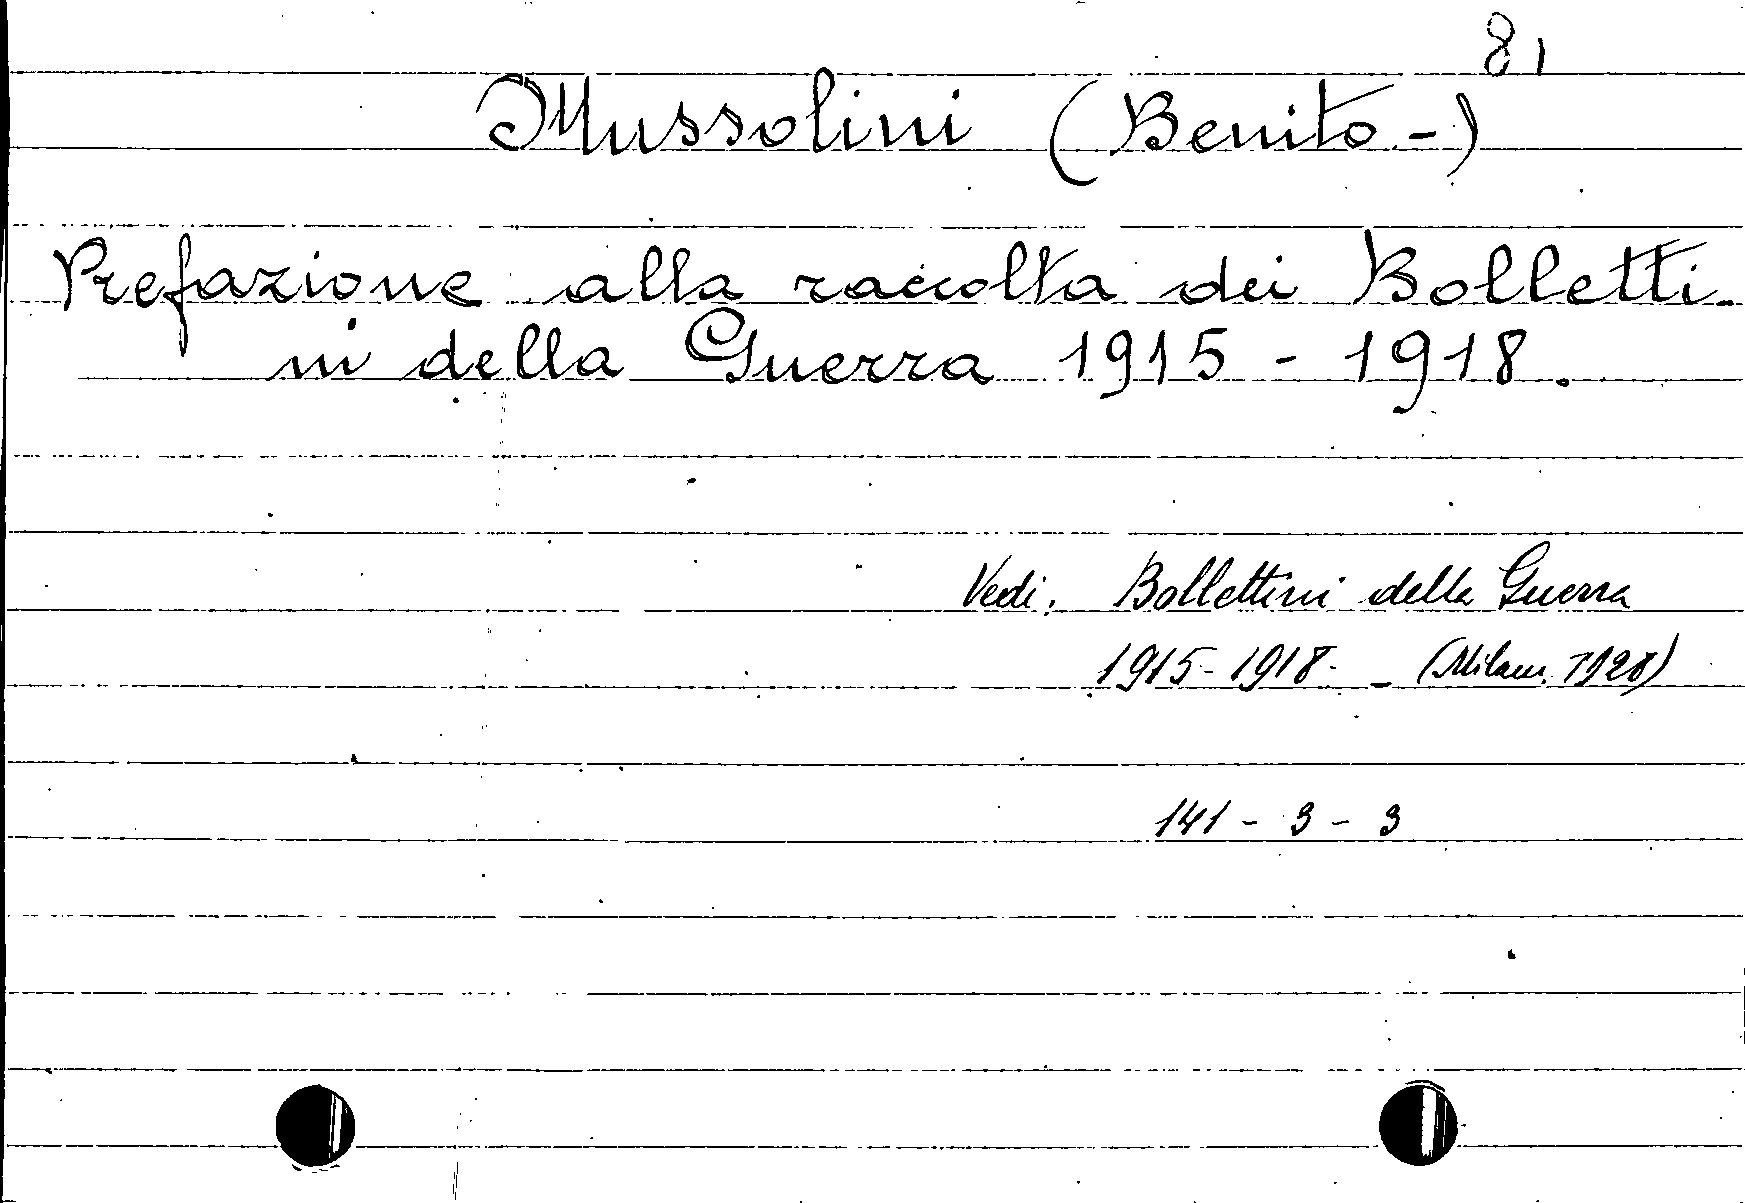 81
Mussolini (Benito -)
Prefazione alla raccolta dei Bolletti-
ni della Guerra 1915 - 1918.
Vedi. Bollettini della Guerra
1915-1918- - (Milano. 1928)
141 - 3 - 3